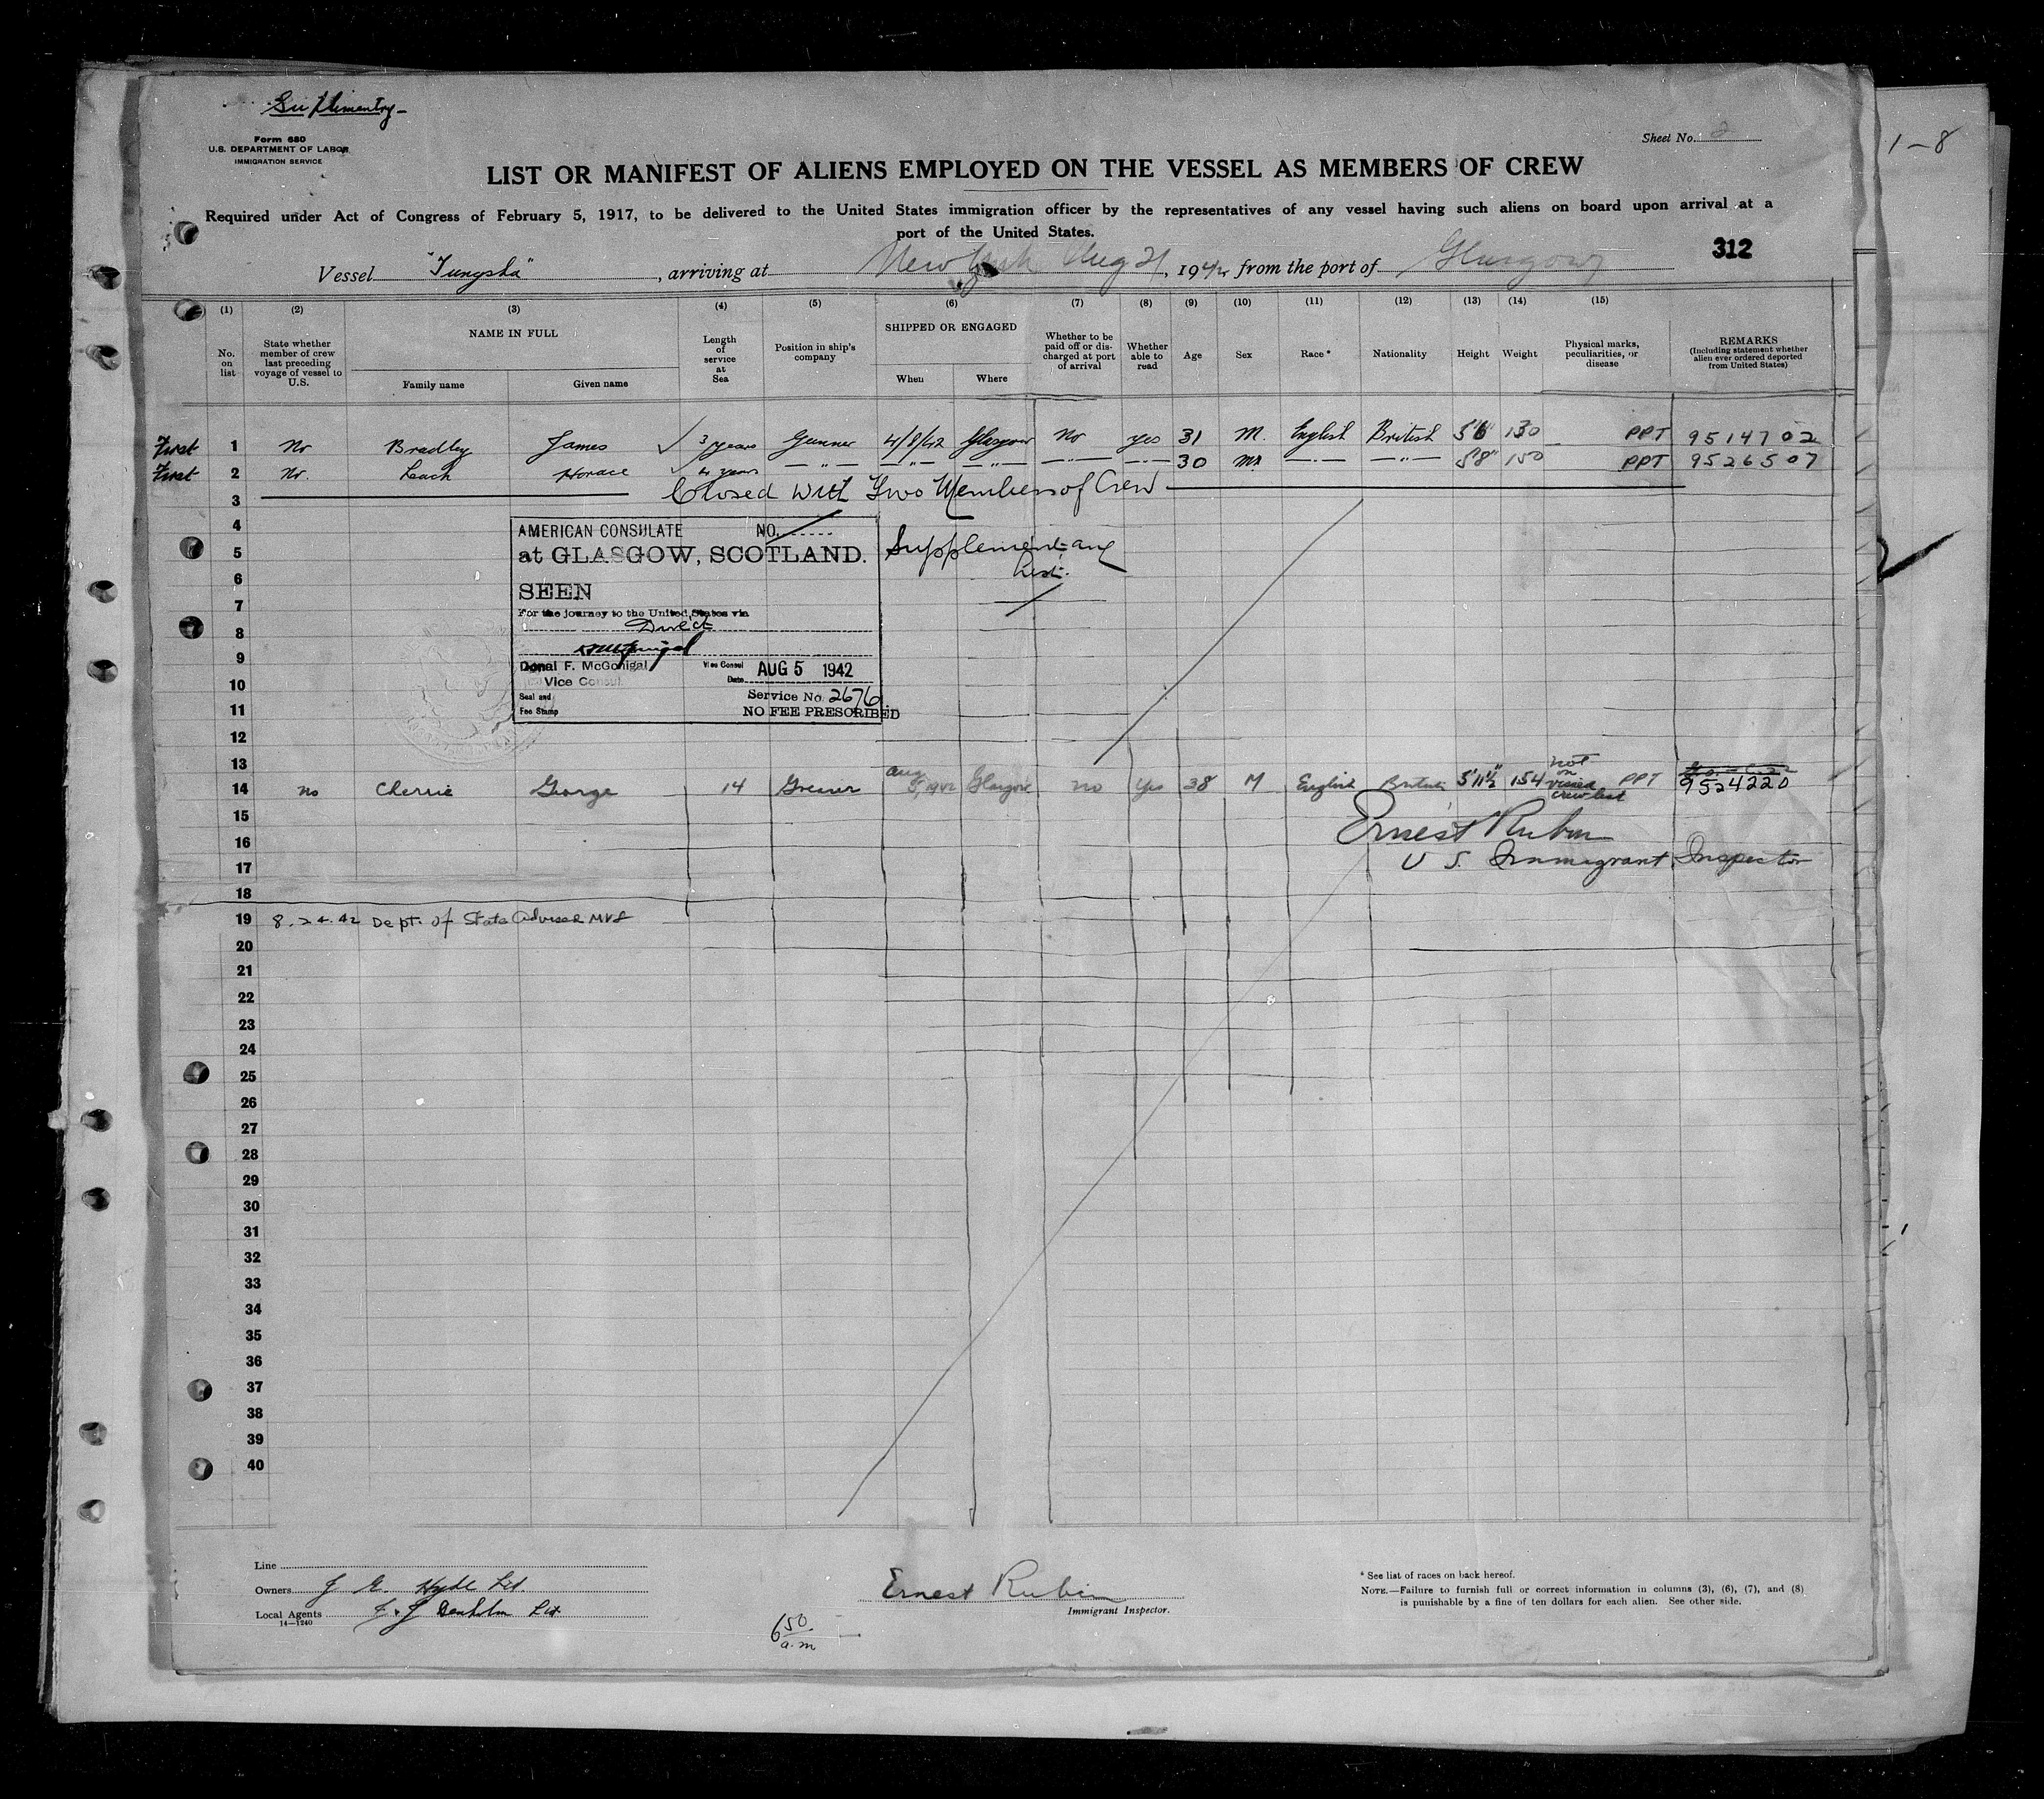 Suplimentry-
Form 680
U.S. DEPARTMENT OF LABOR
IMMIGRATION SERVICE
Sheet No. 2
1-8
LIST OR MANIFEST OF ALIENS EMPLOYED ON THE VESSEL AS MEMBERS OF CREW
Required under Act of Congress of February 5, 1917, to be delivered to the United States immigration officer by the representatives of any vessel having such aliens on board upon arrival at a
port of the United States.
312
Vessel "Tungsha", arriving at New York Aug 21, 1942 from the port of Glasgow
(1) (2) (3) (4) (5) (6) (7) (8) (9) (10) (11) (12) (13) (14) (15)
No. on list
State whether member of crew last preceding voyage of vessel to U.S.
NAME IN FULL
Family name Given name
Length of service at Sea
Position in ship's company
SHIPPED OR ENGAGED
When Where
Whether to be paid off or discharged at port of arrival
Whether able to read
Age
Sex
Race*
Nationality
Height
Weight
Physical marks, peculiarities, or disease
REMARKS
(Including statement whether alien ever ordered deported from United States)
First 1 No Bradley James ✓ 3 years Gunner 4/8/42 Glasgow No yes 31 M. English British 5'6" 130 — PPT 9514702
First 2 No. Leach Horace ✓ 4 years — " — — " — — " — — " — — " — 30 M — " — — " — 5'8" 150 PPT 9526507
3 Closed with Two Members of Crew
4
5
6
7
8
9
10
11
12
13
AMERICAN CONSULATE NO.
at GLASGOW, SCOTLAND.
SEEN
For the journey to the United States via
Direct
Donal F. McGonigal Vice Consul
Vice Consul
Date AUG 5 1942
Seal and
Fee Stamp
Service No. 2676
NO FEE PRESCRIBED
Supplementary
List.
14 no Cherrie George 14 Greaser Aug 5, 1942 Glasgow no Yes 38 M English British 5'11½" 154 not on visaed crew list PPT 9524220
15
Ernest Rubin
16
U S. Immigrant Inspector
17
18
19 8.24.42 Dept. of State Advised MVS
20
21
22
23
24
25
26
27
28
29
30
31
32
33
34
35
36
37
38
39
40
Line
Owners J E. Hyde Ltd.
Local Agents J. & J Denholm Ltd.
14—1240
6 50 a.m
Ernest Rubin
Immigrant Inspector.
* See list of races on back hereof.
NOTE.—Failure to furnish full or correct information in columns (3), (6), (7), and (8)
is punishable by a fine of ten dollars for each alien. See other side.